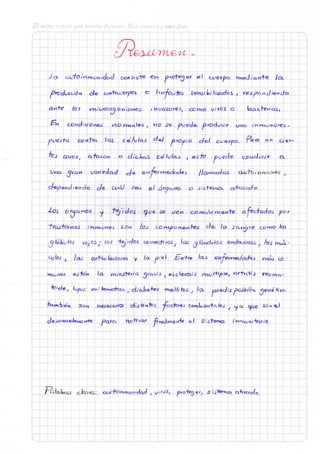 Resumen.
La autoinmunidad consiste en proteger el cuerpo mediante la
producción de anticuerpos o linfocitos sensibilizados, respondiendo
ante los microorganismos invasores, como virus o bacterias.
En condiciones normales, no se puede producir una inmunores-
puesta contra las células del propio del cuerpo. Pero en cier-
tos casos, atacan a dichas células, esto puede conducir a
una gran variedad de enfermedades llamadas autoinmunes,
dependiendo de cuál sea el órgano o sistema atacado.
Los órganos y tejidos que se ven comúnmente afectados por
Trastornos inmunes son los componentes de la sangre como los
glóbulos rojos; los tejidos conectivos, las glándulas endócrinas, los mús-
culos, las articulaciones y la piel. Entre las enfermedades más co-
munes están la miastenia gravis, esclerosis múltiple, artritis reuma-
toide, lupus eritematoso, diabetes mellitus, la predisposición genética
también son necesarios distintos factores ambientales, ya que son el
desencadenante para activar finalmente el sistema inmunitario.
Palabras claves: autoinmunidad, virus, proteger, sistema atacado.